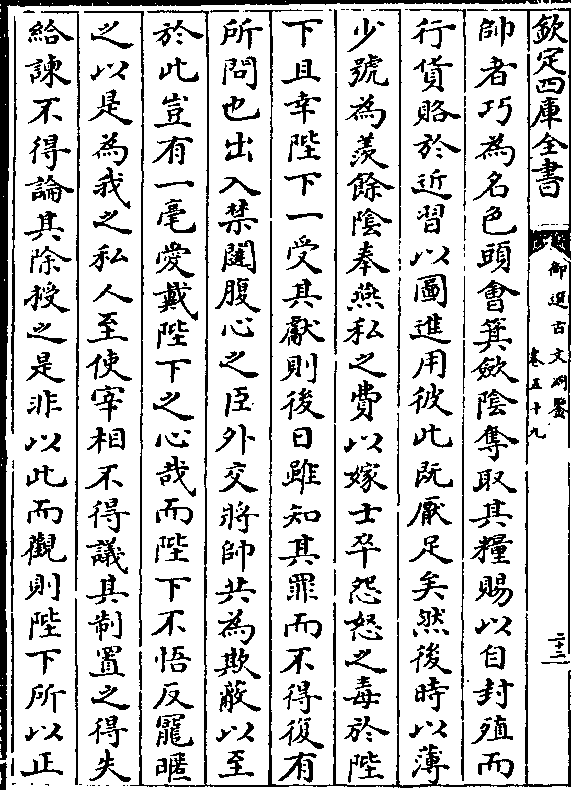 欽定四庫全書
御選古文淵鑒
卷五十九
二十二
帥者巧為名色頭會箕斂陰奪取其糧賜以自封殖而
行貨賂於近習以圖進用彼此既厭足矣然後時以薄
少號為羡餘陰奉燕私之費以嫁士卒怨怒之毒於陛
下且幸陛下一受其獻則後日雖知其罪而不得復有
所問也出入禁闥腹心之臣外交將帥共為欺蔽以至
於此豈有一毫愛戴陛下之心哉而陛下不悟反寵暱
之以是為我之私人至使宰相不得議其制置之得失
給諫不得論其除授之是非以此而觀則陛下所以正